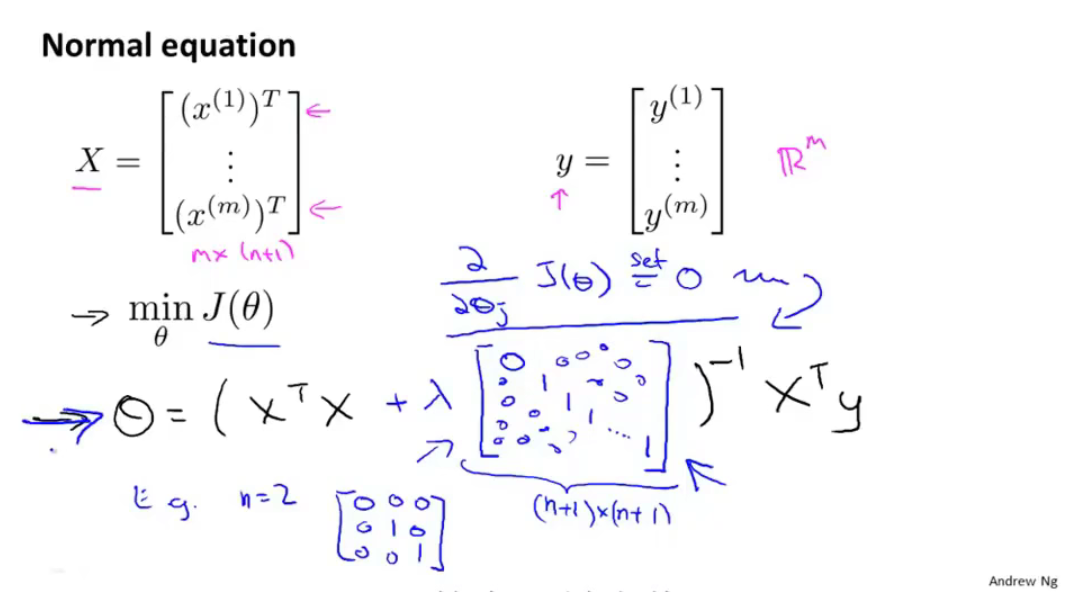 Normal equation
X = [ (x^(1))^T ⋮ (x^(m))^T ] ← ←
m × (n+1)
y = [ y^(1) ⋮ y^(m) ] ℝ^m
↑
∂/∂θj J(θ) set = 0
→ min_θ J(θ)
→ θ = ( X^T X + λ [ 0 1 1 1 .... 1 ] )^-1 X^T y
(n+1)×(n+1)
E.g. n=2 [ 0 0 0
0 1 0
0 0 1 ]
Andrew Ng